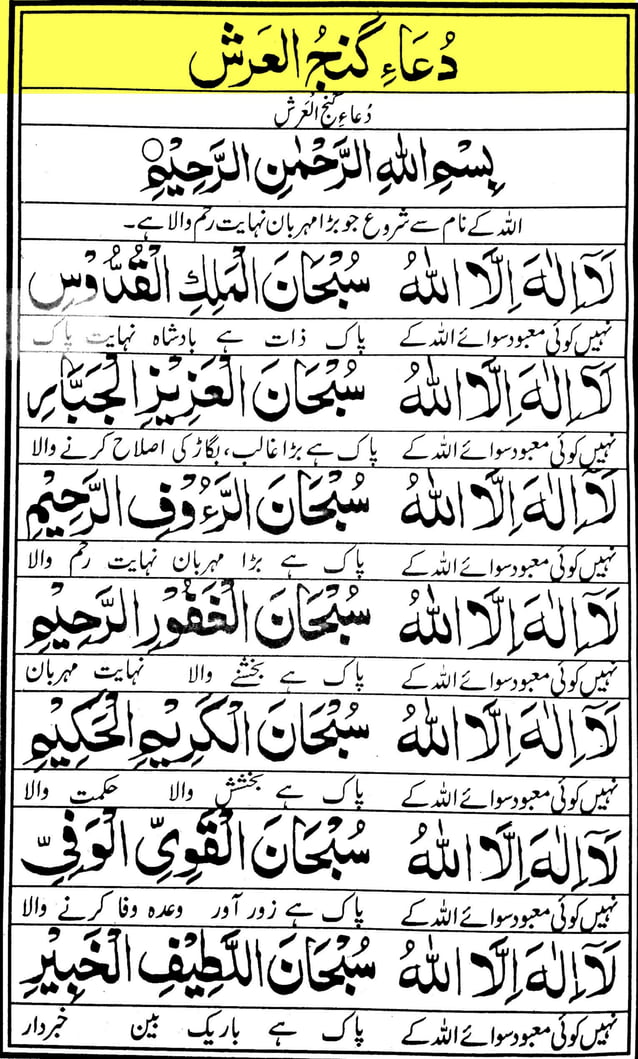 دُعَاءِ گَنجُ العَرش
دُعاءِ گنج العرش
بِسْمِ اللهِ الرَّحْمٰنِ الرَّحِيْمِ
اللہ کے نام سے شروع جو بڑا مہربان نہایت رحم والا ہے۔
لَآ اِلٰهَ اِلَّا اللهُ سُبْحَانَ الْمَلِكِ الْقُدُّوْسِ
نہیں کوئی معبود سوائے اللہ کے پاک ذات ہے بادشاہ نہایت پاک
لَآ اِلٰهَ اِلَّا اللهُ سُبْحَانَ الْعَزِيْزِ الْجَبَّارِ
نہیں کوئی معبود سوائے اللہ کے پاک ہے بڑا غالب، بگاڑ کی اصلاح کرنے والا
لَآ اِلٰهَ اِلَّا اللهُ سُبْحَانَ الرَّءُوْفِ الرَّحِيْمِ
نہیں کوئی معبود سوائے اللہ کے پاک ہے بڑا مہربان نہایت رحم والا
لَآ اِلٰهَ اِلَّا اللهُ سُبْحَانَ الْغَفُوْرِ الرَّحِيْمِ
نہیں کوئی معبود سوائے اللہ کے پاک ہے بخشنے والا نہایت مہربان
لَآ اِلٰهَ اِلَّا اللهُ سُبْحَانَ الْكَرِيْمِ الْحَكِيْمِ
نہیں کوئی معبود سوائے اللہ کے پاک ہے بخشش والا حکمت والا
لَآ اِلٰهَ اِلَّا اللهُ سُبْحَانَ الْقَوِيِّ الْوَفِيِّ
نہیں کوئی معبود سوائے اللہ کے پاک ہے زور آور وعدہ وفا کرنے والا
لَآ اِلٰهَ اِلَّا اللهُ سُبْحَانَ اللَّطِيْفِ الْخَبِيْرِ
نہیں کوئی معبود سوائے اللہ کے پاک ہے باریک بین خبردار